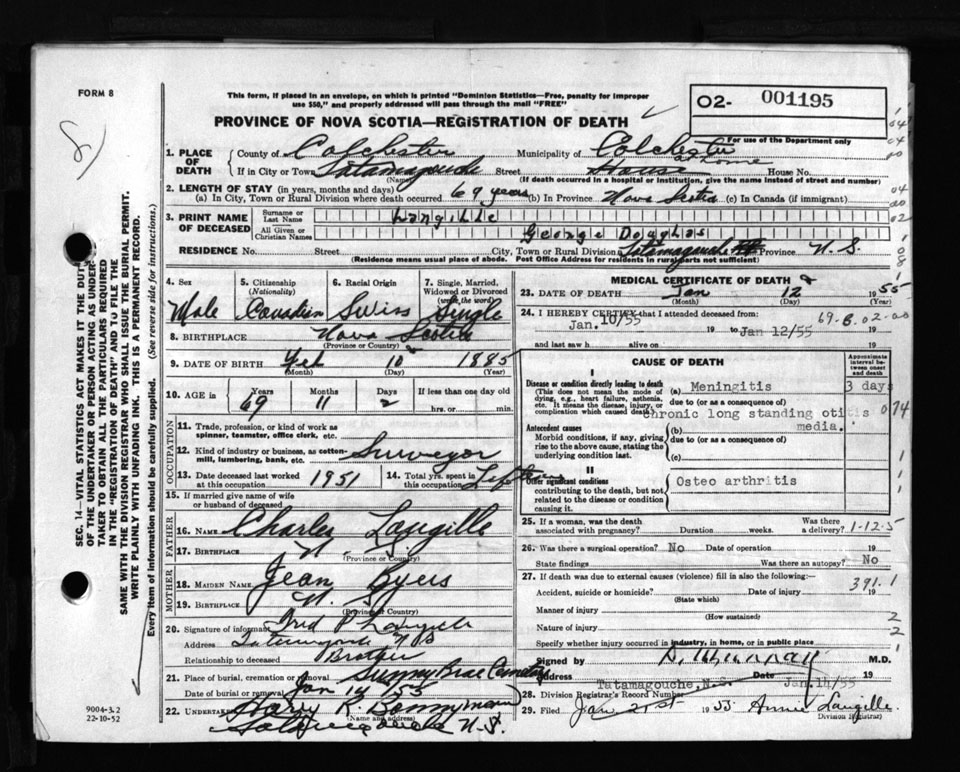 FORM 8
This form, if placed in an envelope, on which is printed "Dominion Statistics—Free, penalty for improper
use $50," and properly addressed will pass through the mail "FREE"
PROVINCE OF NOVA SCOTIA—REGISTRATION OF DEATH
02- 001195
For use of the Department only
1. PLACE OF DEATH County of Colchester Municipality of Colchester
If in City or Town Tatamagouche Street House at home House No.
(Name) (If death occurred in a hospital or institution, give the name instead of street and number)
2. LENGTH OF STAY (in years, months and days)
(a) In City, Town or Rural Division where death occurred 69 years (b) In Province Nova Scotia (c) In Canada (if immigrant)
3. PRINT NAME OF DECEASED Surname or Last Name Langille
All Given or Christian Names George Douglas
RESIDENCE No. Street City, Town or Rural Division Tatamagouche Province N. S.
(Residence means usual place of abode. Post Office Address for residents in rural parts not sufficient)
4. Sex Male
5. Citizenship (Nationality) Canadian
6. Racial Origin Swiss
7. Single, Married, Widowed or Divorced (write the word) Single
8. BIRTHPLACE Nova Scotia
(Province or Country)
9. DATE OF BIRTH Feb 10 1885
(Month) (Day) (Year)
10. AGE in Years 69 Months 11 Days 2 If less than one day old
hrs. or min.
OCCUPATION
11. Trade, profession, or kind of work as
spinner, teamster, office clerk, etc.
12. Kind of industry or business, as cotton-
mill, lumbering, bank, etc. Surveyor
13. Date deceased last worked
at this occupation 1951
14. Total yrs. spent in
this occupation
15. If married give name of wife
or husband of deceased
FATHER
16. Name Charles Langille
17. Birthplace N. S.
(Province or Country)
MOTHER
18. Maiden Name Jean Byers
19. Birthplace N. S.
(Province or Country)
20. Signature of informant Fred P Langille
Address Tatamagouche N S
Relationship to deceased Brother
21. Place of burial, cremation or removal Sunny Brae Cemetery
Date of burial or removal Jan 14 / 55
22. Undertaker Harry R. Bonnyman
(Name and address)
Tatamagouche N. S.
9004-3.2
22-10-52
MEDICAL CERTIFICATE OF DEATH
23. DATE OF DEATH Jan 12 1955
(Month) (Day) (Year)
24. I HEREBY CERTIFY that I attended deceased from:
Jan. 10/55 19 to Jan 12/55 19
69-B.02-00
and last saw h alive on 19
CAUSE OF DEATH
Approximate interval between onset and death
I
Disease or condition directly leading to death
(This does not mean the mode of dying, e.g., heart failure, asthenia, etc. It means the disease, injury, or complication which caused death.)
(a) Meningitis 3 days
due to (or as a consequence of)
chronic long standing otitis media. 074
Antecedent causes
Morbid conditions, if any, giving rise to the above cause, stating the underlying condition last.
(b)
due to (or as a consequence of)
(c)
II
Other significant conditions
contributing to the death, but not related to the disease or condition causing it.
Osteo arthritis
25. If a woman, was the death
associated with pregnancy? Duration weeks. Was there a delivery? 1-12-5
26. Was there a surgical operation? No Date of operation 19
State findings Was there an autopsy? No
27. If death was due to external causes (violence) fill in also the following:—
391.1
Accident, suicide or homicide? Date of injury 19
(State which)
Manner of injury
(How sustained)
Nature of injury
Specify whether injury occurred in industry, in home, or in public place
Signed by M.D.
Address Tatamagouche, N.S. Date Jan.14/55
28. Division Registrar's Record Number
29. Filed Jan 21st 1955 Annie Langille
Division Registrar)
SEC. 14—VITAL STATISTICS ACT MAKES IT THE DUTY
OF THE UNDERTAKER OR PERSON ACTING AS UNDER-
TAKER TO OBTAIN ALL THE PARTICULARS REQUIRED
IN THE "REGISTRATION OF DEATH" AND TO FILE THE
SAME WITH THE DIVISION REGISTRAR WHO SHALL ISSUE THE BURIAL PERMIT.
WRITE PLAINLY WITH UNFADING INK. THIS IS A PERMANENT RECORD.
Every item of information should be carefully supplied. (See reverse side for instructions.)